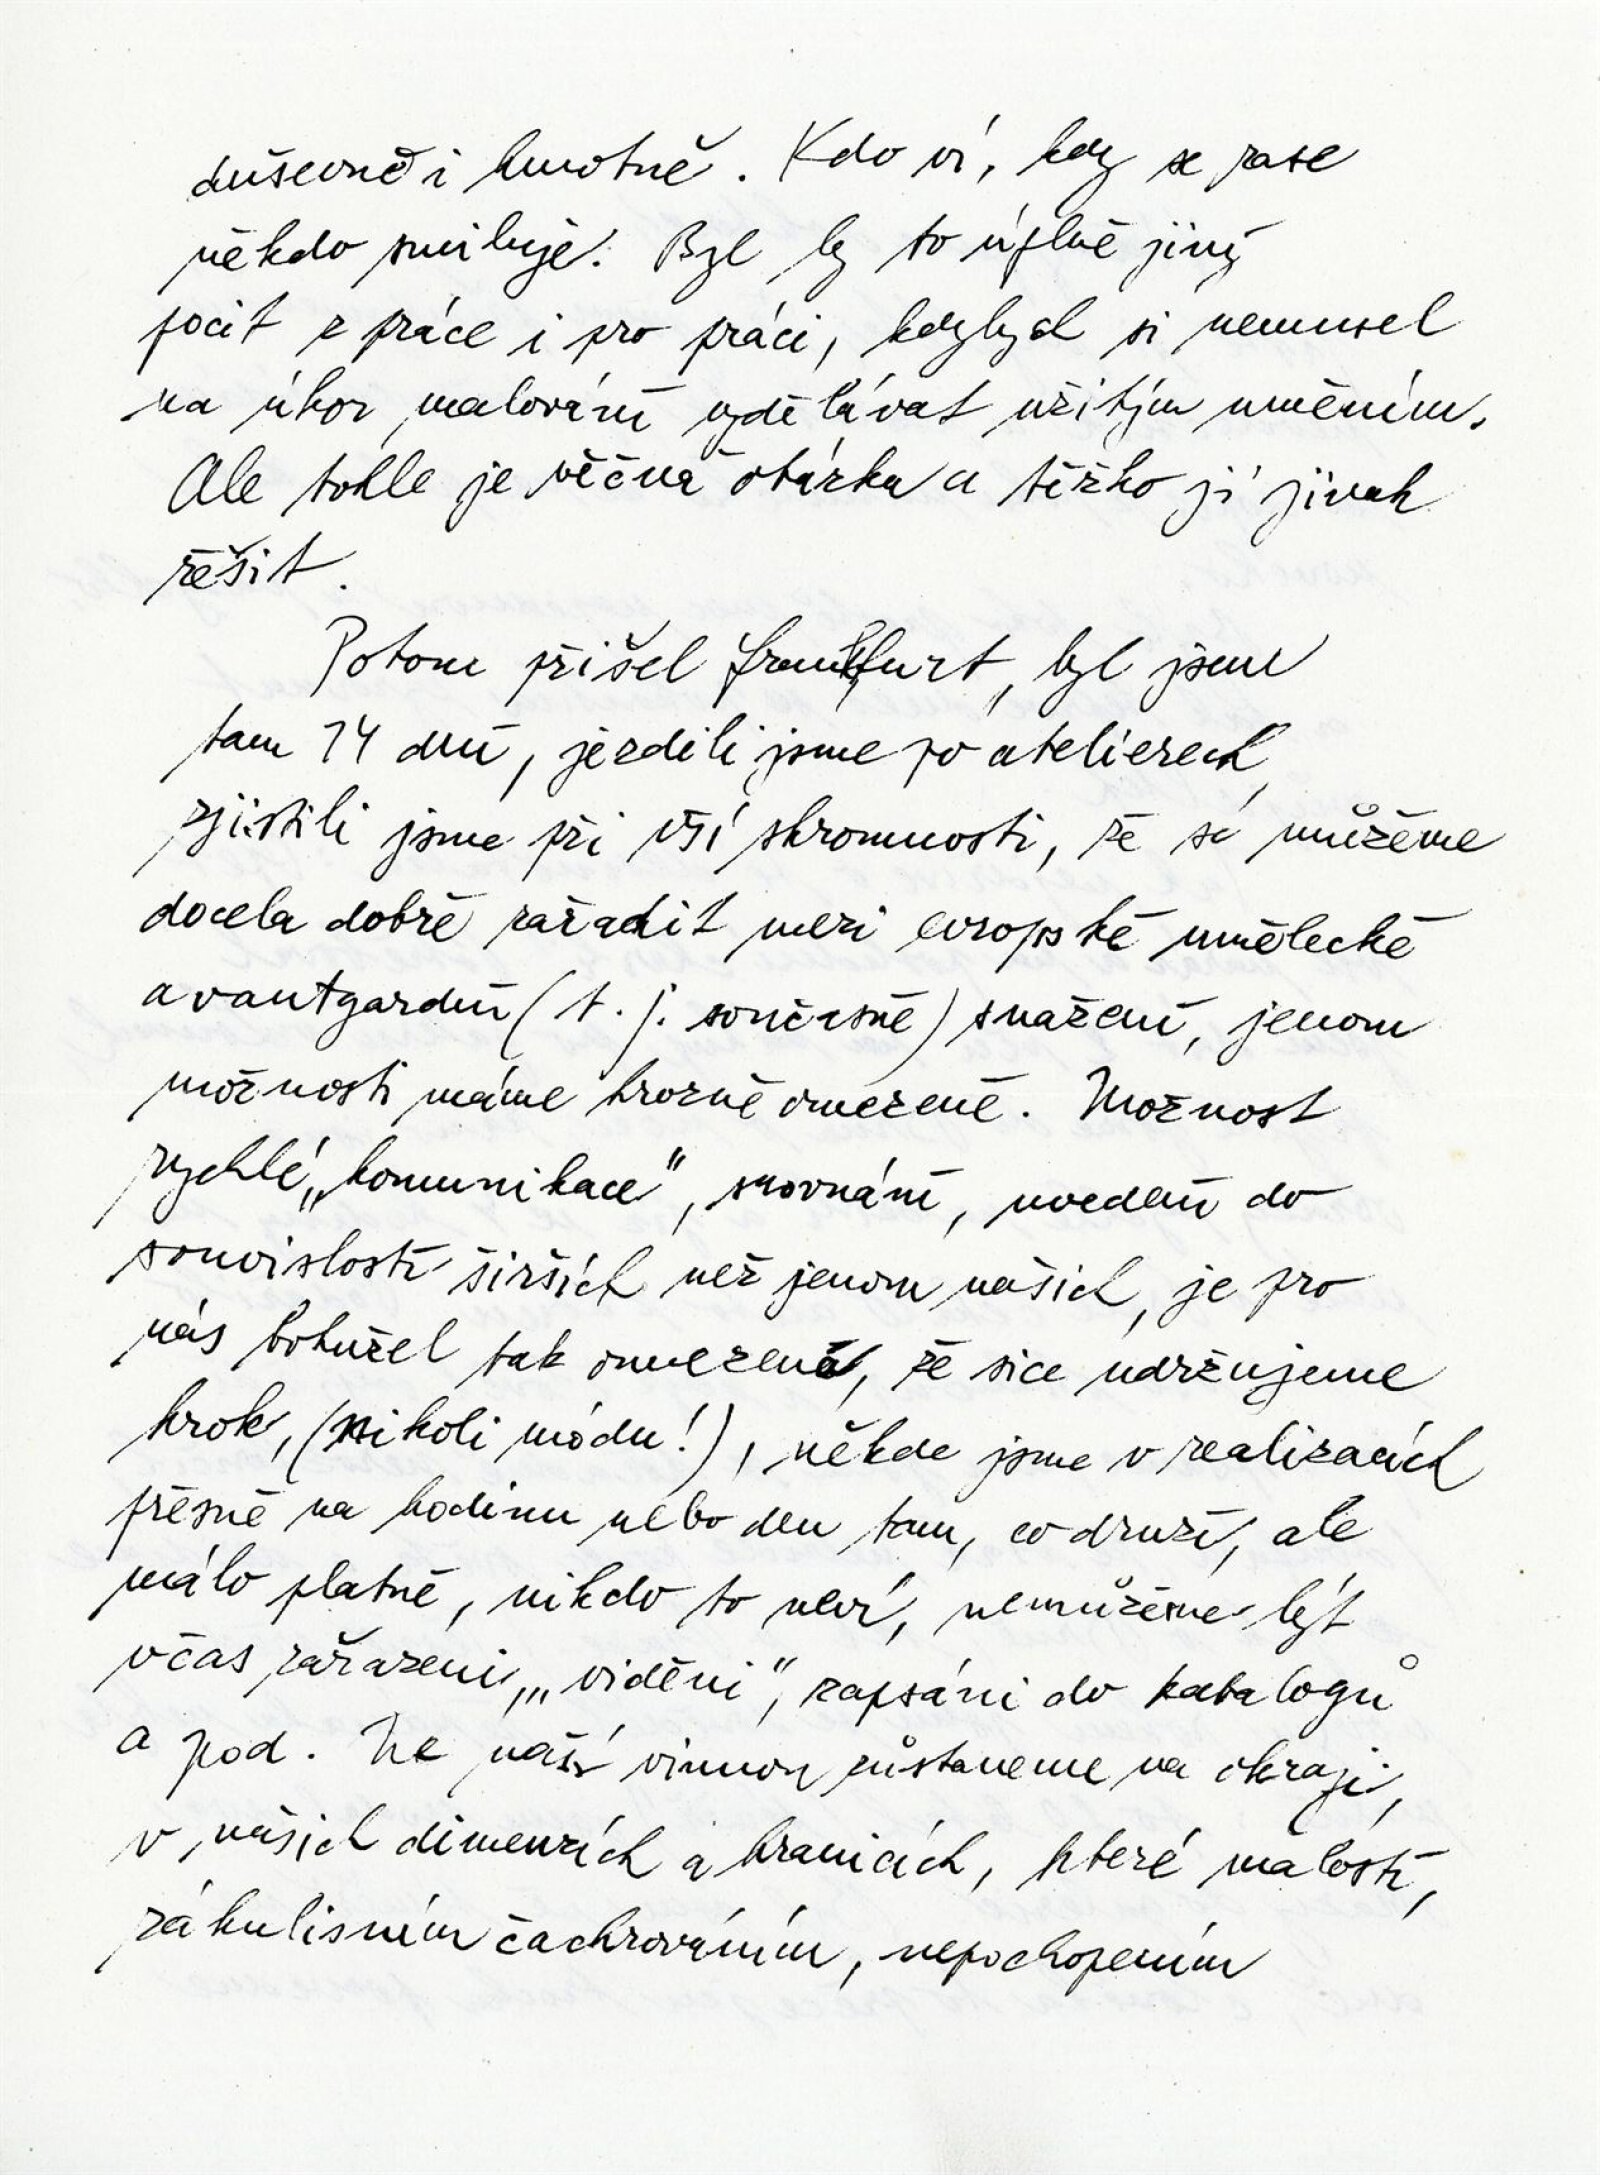 duševně i hmotně. Kdo ví, kdy se zase
někdo smiluje. Byl by to úplně jiný
pocit z práce i pro práci, kdybych si nemusel
na úkor malování vydělávat užitým uměním.
Ale tohle je věčná otázka a těžko jí jinak
řešit.
Potom přišel Frankfurt, byl jsem
tam 14 dní, jezdili jsme po atelierech,
zjistili jsme při vší skromnosti, že se můžeme
docela dobře zařadit mezi evropské umělecké
avantgardní (t. j. současné) snažení, jenom
možnosti máme hrozně omezené. Možnost
rychlé „komunikace", srovnání, uvedení do
souvislostí širších než jenom našich, je pro
nás bohužel tak omezená, že sice udržujeme
krok, (nikoli módu!), někde jsme v realizacích
přesně na hodinu nebo den tam, co druzí, ale
málo platné, nikdo to neví, nemůžeme být
včas zařazeni, „viděni", zapsáni do katalogů
a pod. Ne naší vinnou zůstaneme na okraji,
v našich dimenzích a hranicích, které malostí,
zákulisním čachrováním, nepochopením